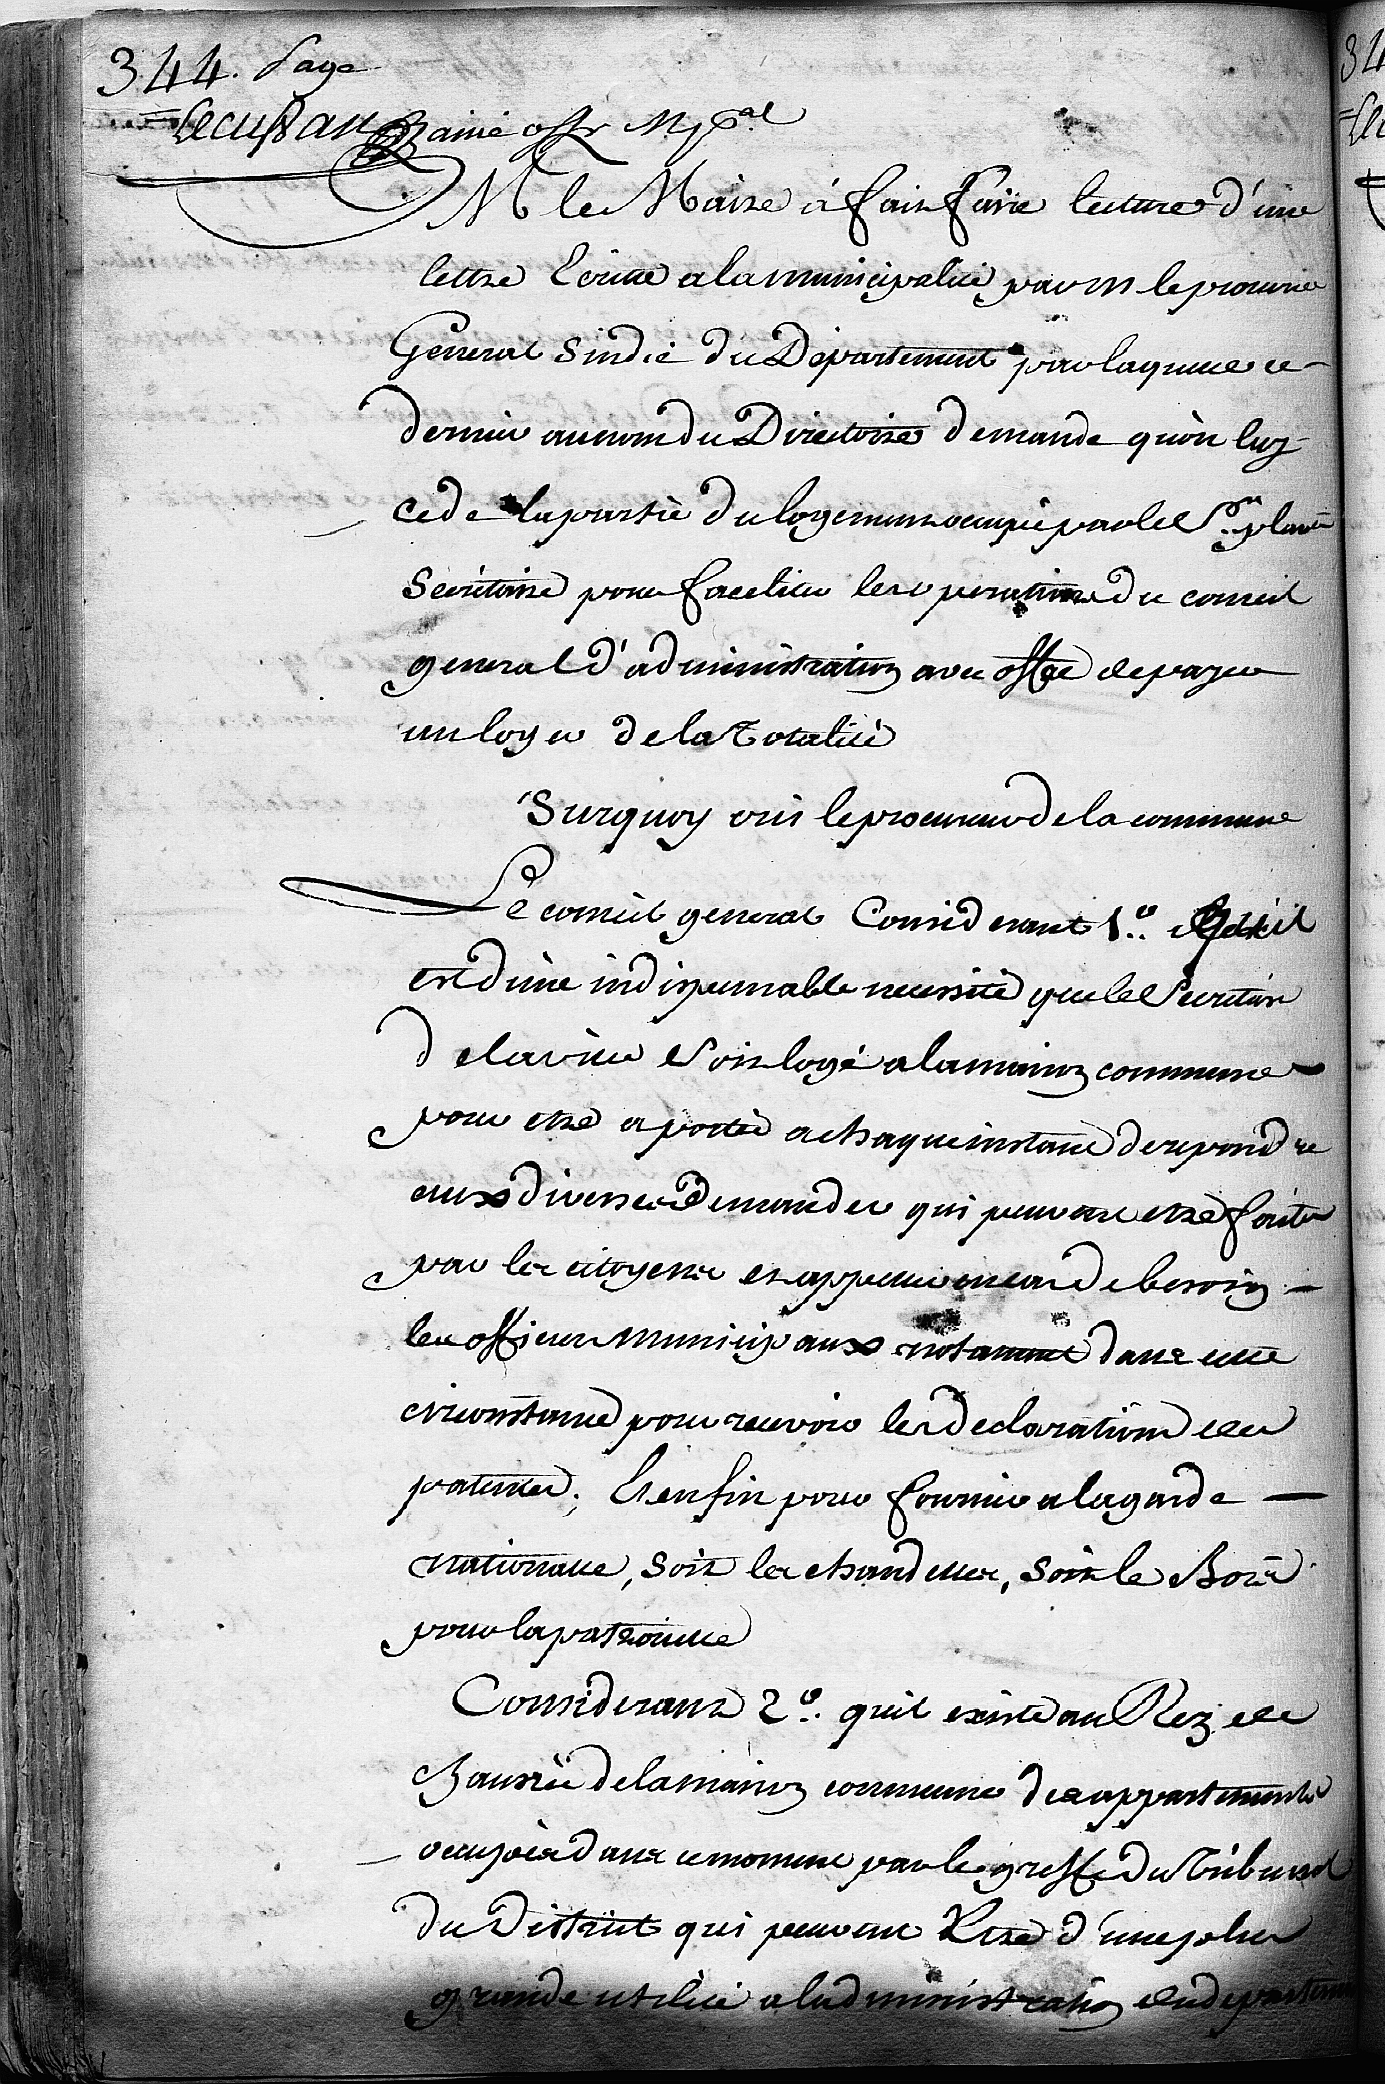 344. Page
Lecussan ainé offr Mpal
M le Maire à fait faire lecture d'une
lettre Ecritte a la municipalité par m le procureur
General Sindic du Departement par laquelle ce
dernier au nom du Directoire demande qu'on luy
cede la partie du logement occupée par le Sr
Secrétaire pour faciliter les operations du conseil
general d'administration avec offre de payer
un loyer de la Totalité
Surquoy ouis le procureur de la commune
Le conseil general Considerant 1o. qu'il
est d'une indispensable necessité que le Secretaire
de la ville Soit logé a la maison commune
pour etre a portée a chaque instant de repondre
aux diverses demandes qui peuvent etre faites
par les citoyens et appeller en cas de besoin
les officiers Municipaux notament dans cette
circonstance pour recevoir les declarations des
patentes; Et enfin pour fournir a la garde
nationalle, soit les chandelles, soit le Bois
pour la patrouille
Considerant 2o. quil existe au Rez de
Chaussée de la maison commune des appartements
occupées dans ce moment par le greffe du Tribunal
du District qui peuvent Etre d'une plus
grande utilité a l'administration du departement